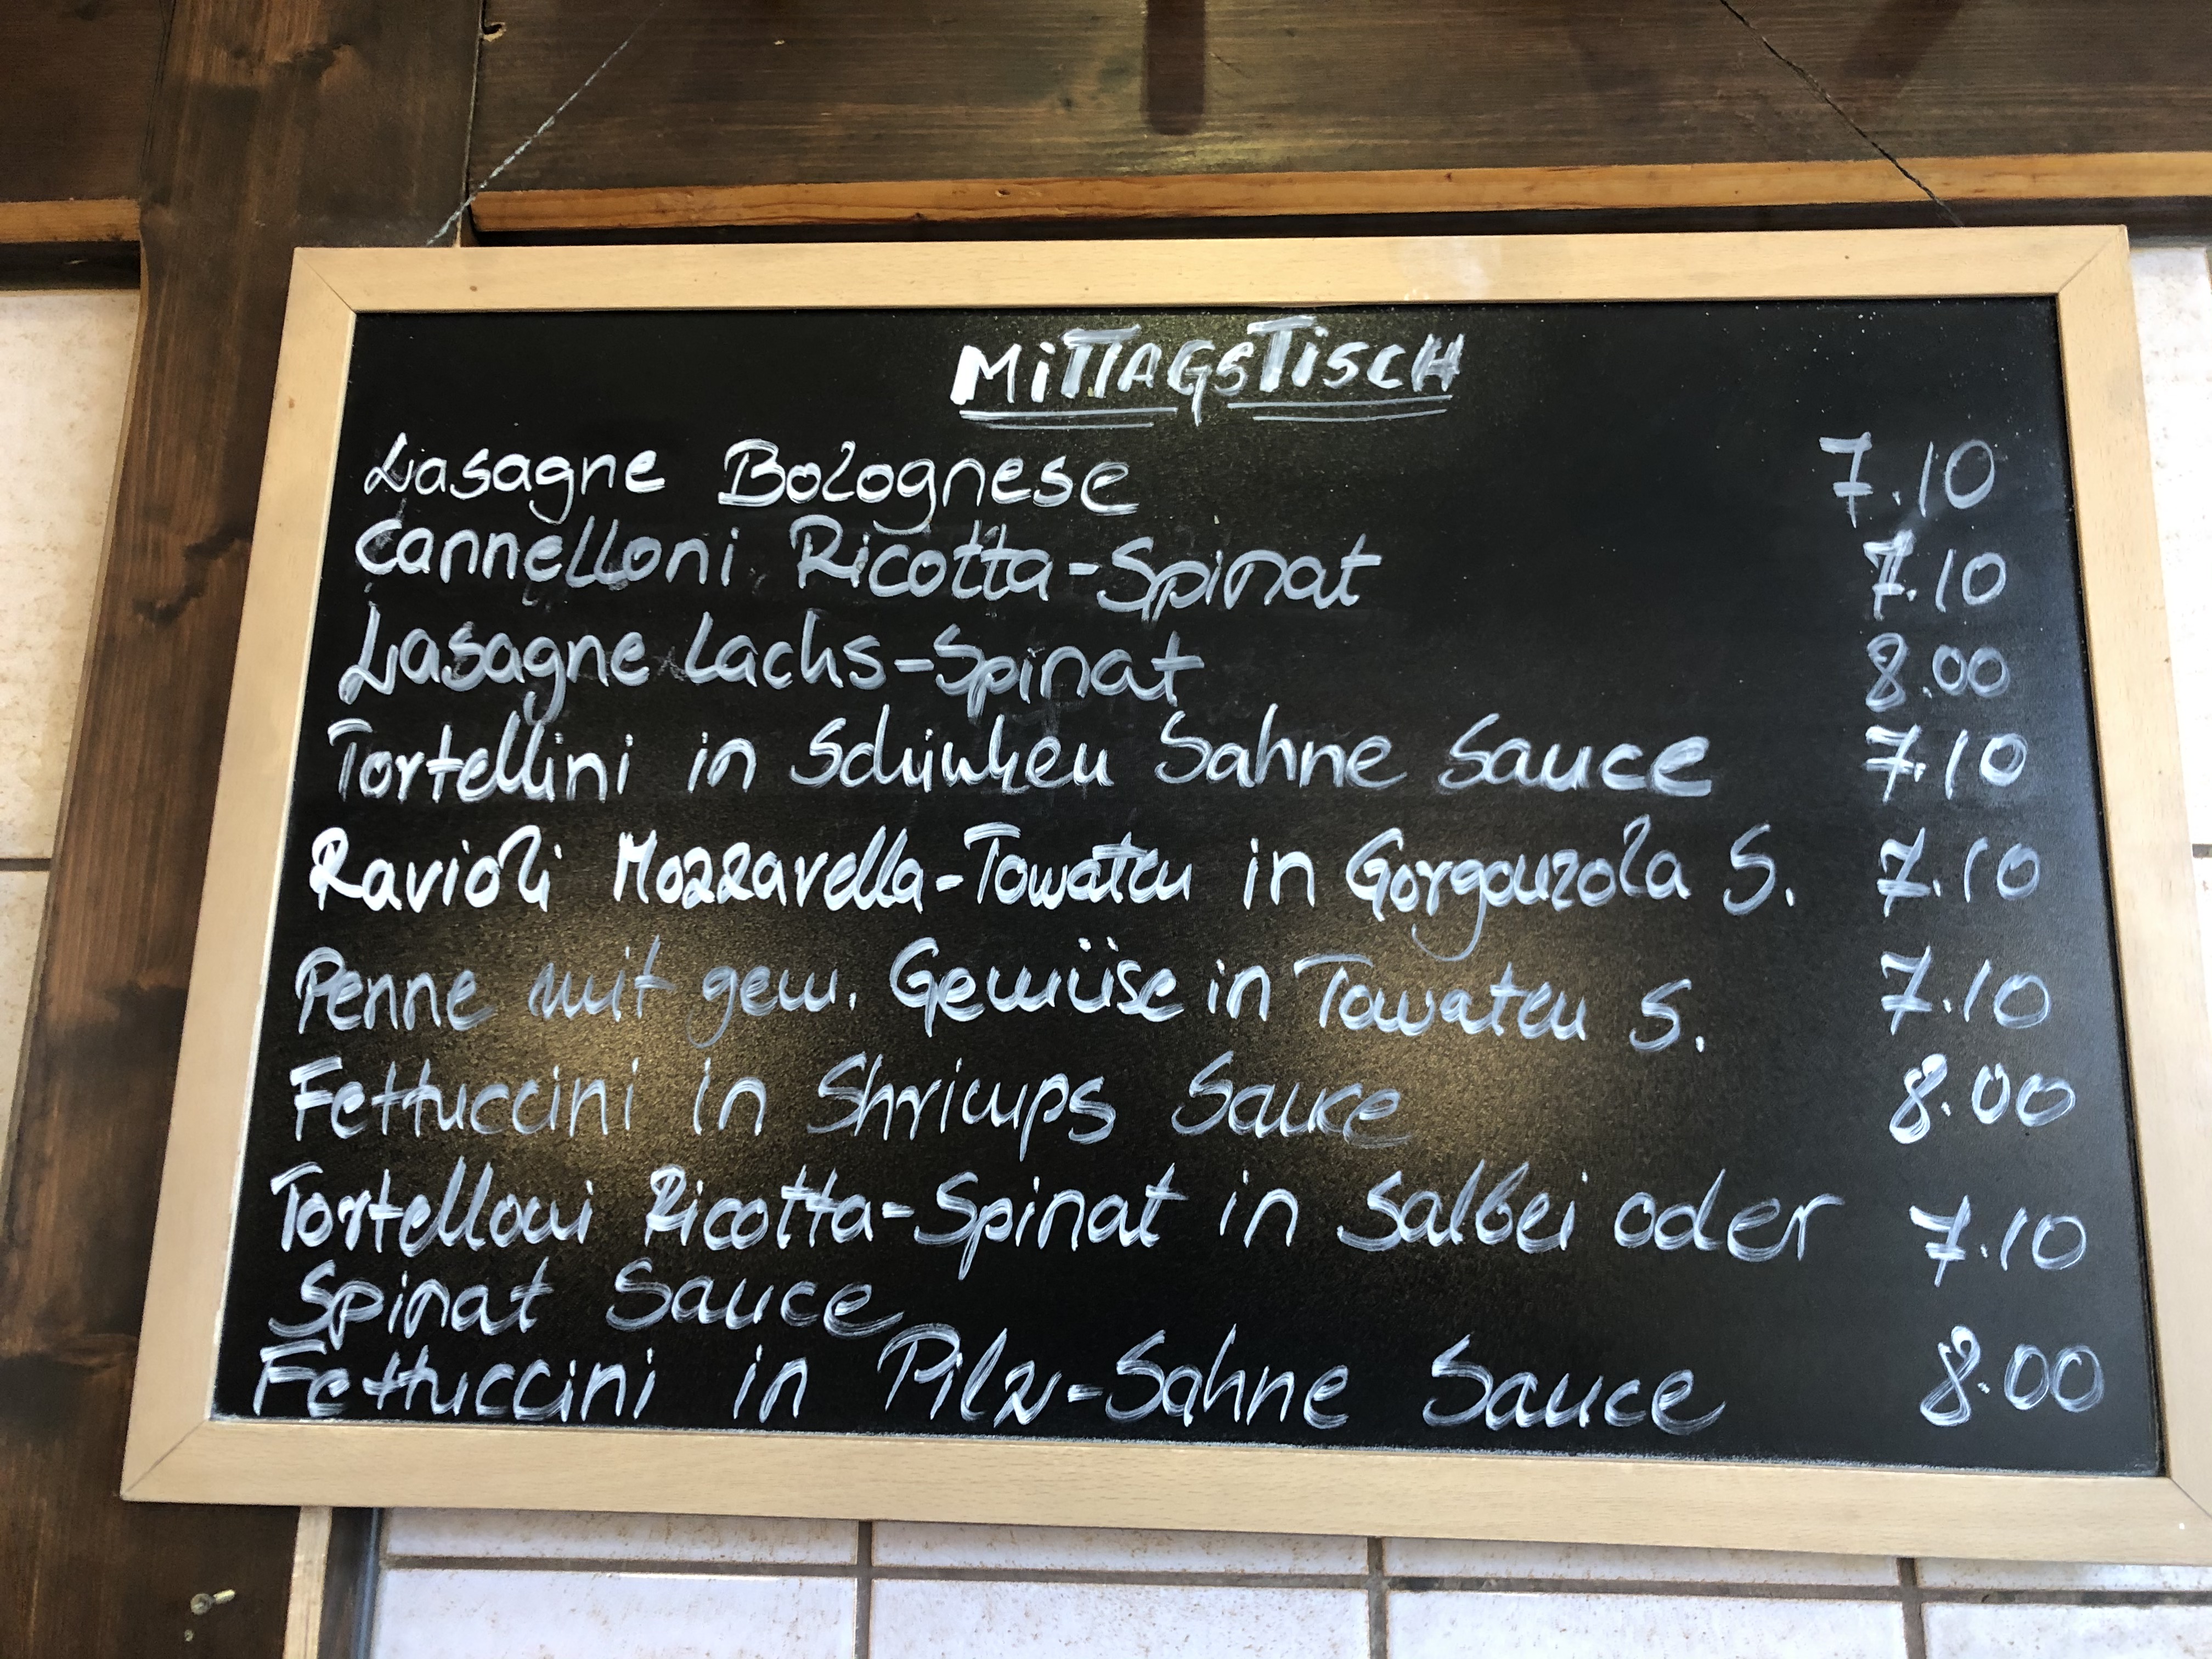 MiTTAGSTiSCH
Lasagne Bolognese 7.10
Cannelloni Ricotta-Spinat 7.10
Lasagne Lachs-Spinat 8.00
Tortellini in Schinken Sahne Sauce 7.10
Ravioli Mozzarella-Tomaten in Gorgonzola S. 7.10
Penne mit gem. Gemüse in Tomaten S. 7.10
Fettuccini in Shrimps Sauce 8.00
Tortelloni Ricotta-Spinat in Salbei oder 7.10
Spinat Sauce
Fettuccini in Pilz-Sahne Sauce 8.00